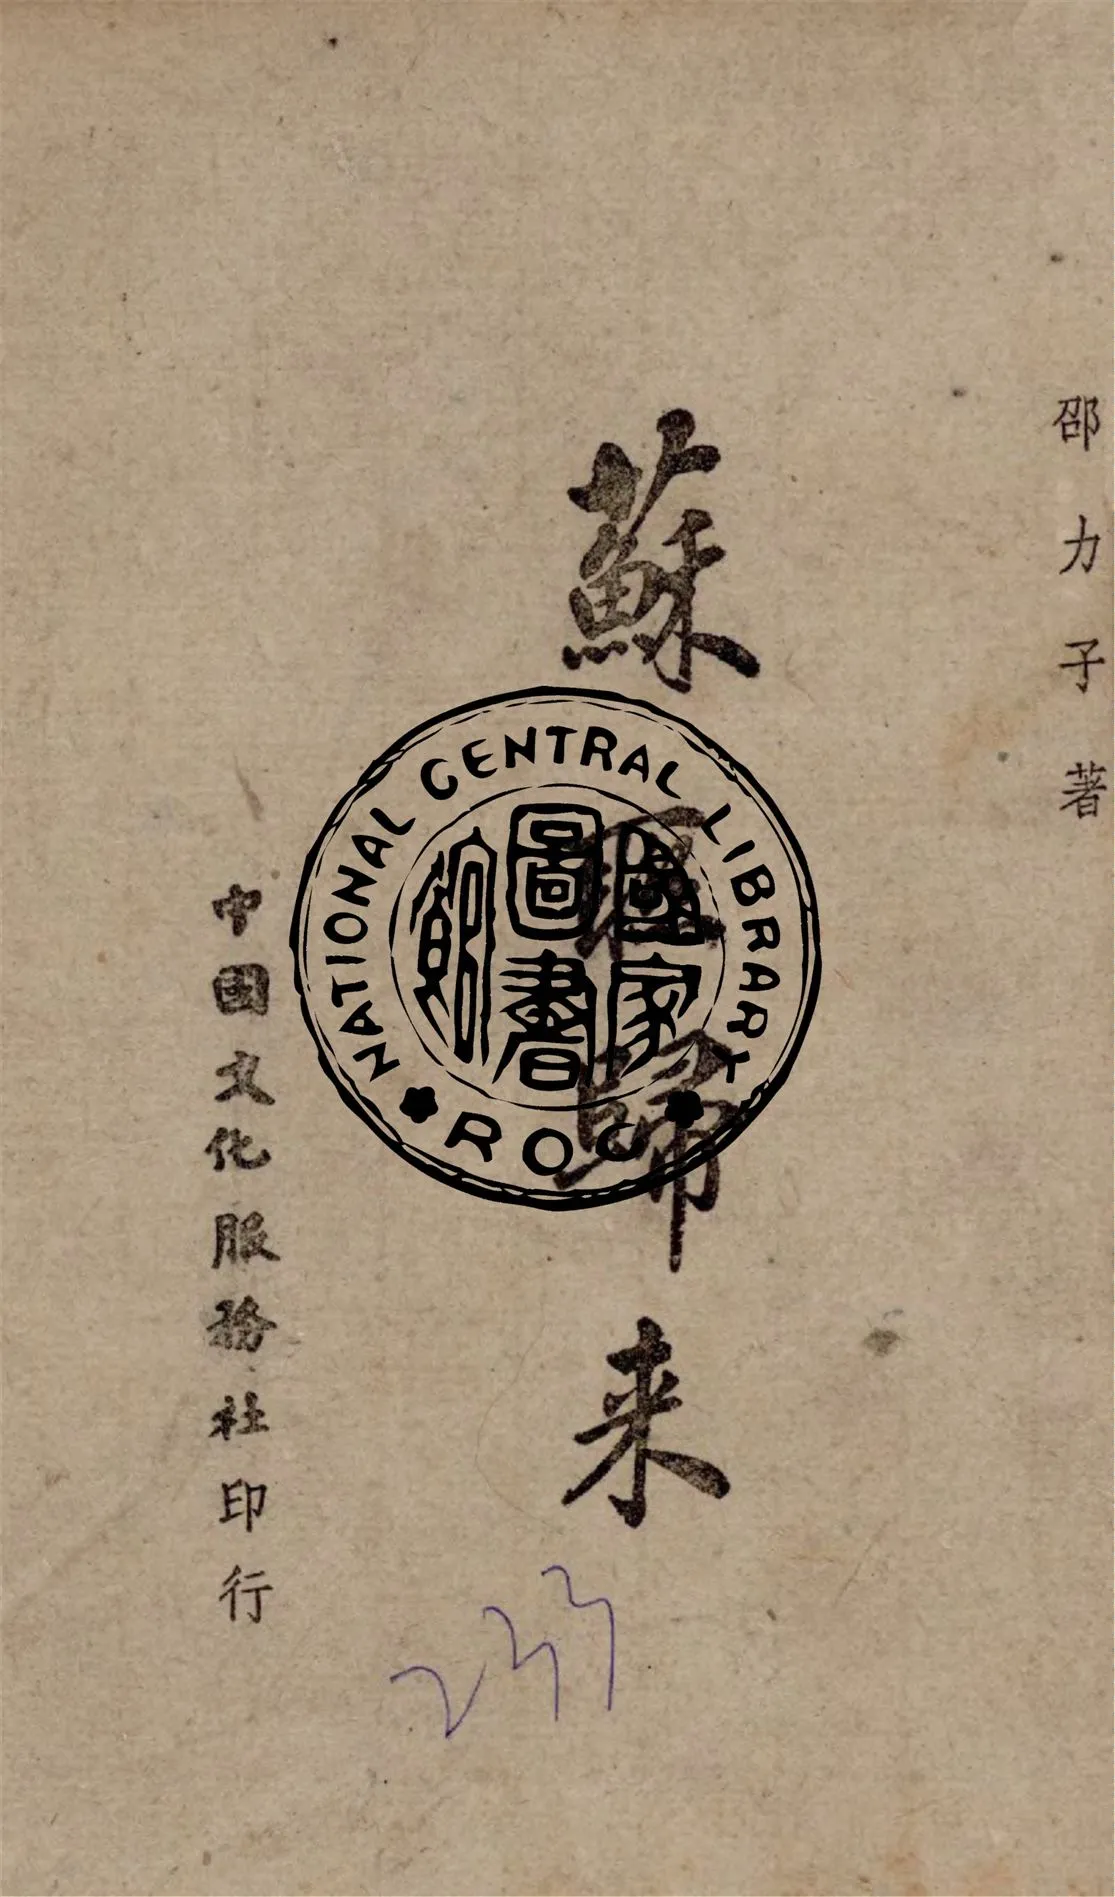 邵力子著
蘇聯歸来
中國文化服務社印行
NATIONAL CENTRAL LIBRARY
國家圖書館
ROC